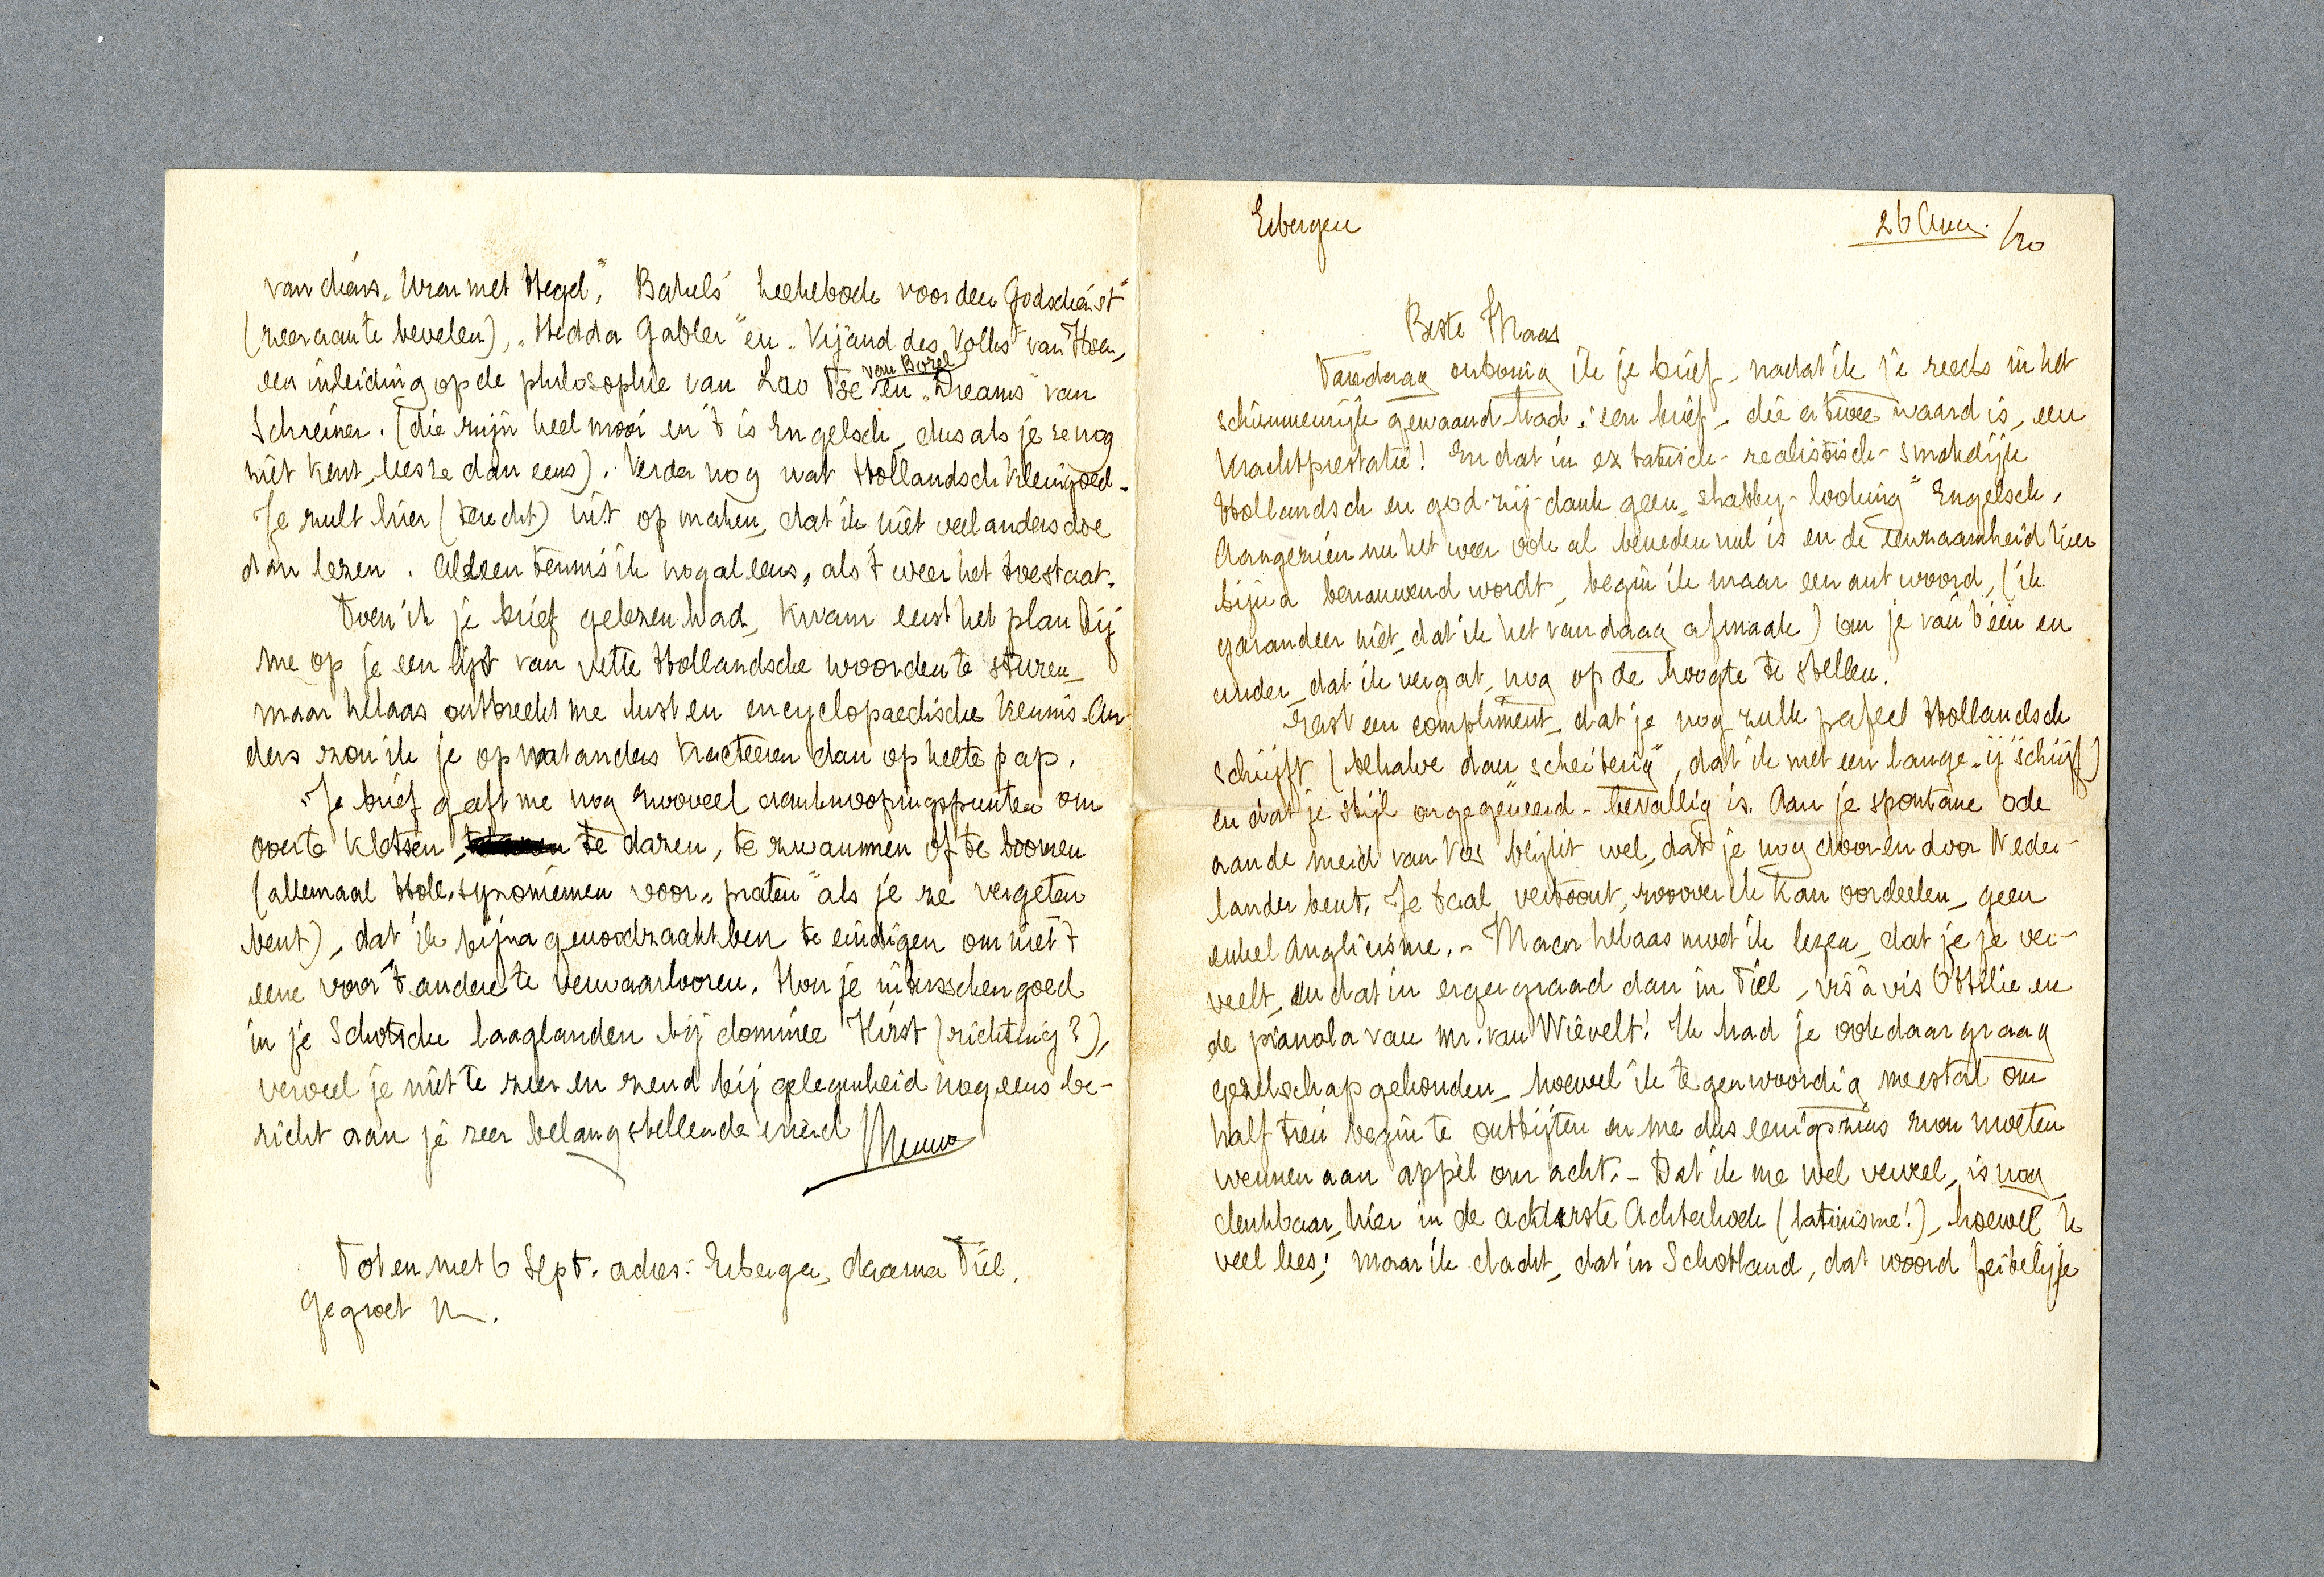 Eibergen
26 Aug. /20
Beste Maas
Vandaag ontving ik je brief, nadat ik je reeds in het
schimmenrijk gewaand had; een brief, die er twee waard is, een
krachtprestatie! En dat in extatisch-realistisch-smakelijk
Hollandsch en god-zij-dank geen „shabby-looking" Engelsch.
Aangezien nu het weer ook al beneden nul is en de eenzaamheid hier
bijna benauwend wordt, begin ik maar een antwoord, (ik
garandeer niet, dat ik het vandaag afmaak) om je van 't één en
ander, dat ik vergat, nog op de hoogte te stellen.
Eerst een compliment, dat je nog zulk perfect Hollandsch
schrijft (behalve dan „scheiterig", dat ik met een lange „ij" schrijf)
en dat je stijl ongegeneerd-bevallig is. Aan je spontane ode
aan de meid van Vos blijkt wel, dat je nog door en door Neder-
lander bent. Je taal vertoont, zoover ik kan oordeelen, geen
enkel Anglicisme. - Maar helaas moet ik lezen, dat je je ver-
veelt, en dat in erger graad dan in Tiel, vis à vis Ottilie en
de pianola van mr. van Wiévelt! Ik had je ook daar graag
gezelschap gehouden, hoewel ik tegenwoordig meestal om
half tien begin te ontbijten en me dus eenigszins zou moeten
wennen aan appèl om acht. - Dat ik me wel verveel, is nog
denkbaar, hier in de achterste Achterhoek (latinisme!), hoewel ik
veel lees; maar ik dacht, dat in Schotland, dat woord feitelijk
van diens „Uren met Hegel", Bakels' Ketterbode voor den Godsdienst"
(zeer aan te bevelen), „Hedda Gabler" en „Vijand des Volks" van Ibsen,
een inleiding op de philosophie van Lao Tse van Borel en „Dreams" van
Schreiner. (die zijn heel mooi en 't is Engelsch, dus als je ze nog
niet kent, lees ze dan eens). Verder nog wat Hollandsch kleingoed.
Je zult hier (terecht) uit opmaken, dat ik niet veel anders doe
dan lezen. Alleen tennis ik nog al eens, als 't weer het toestaat.
Toen ik je brief gelezen had, kwam eerst het plan bij
me op je een lijst van vette Hollandsche woorden te sturen,
maar helaas ontbreekt me lust en encyclopaedische kennis. An-
ders zou ik je op wat anders tracteeren dan op heete pap.
Je brief geeft me nog zooveel aanknoopingspunten om
over te kletsen, te dazen, te zwammen of te boomen
(allemaal Holl. synoniemen voor „praten" als je ze vergeten
bent), dat ik bijna genoodzaakt ben te eindigen om niet 't
eene voor 't andere te verwaarloozen. Hou je intusschen goed
in je Schotsche laaglanden bij dominee Hirst (richting?),
verveel je niet te zeer en zend bij gelegenheid nog eens be-
richt aan je zeer belangstellende vriend Menno
Tot en met 6 Sept. adres: Eibergen, daarna Tiel.
Gegroet M.